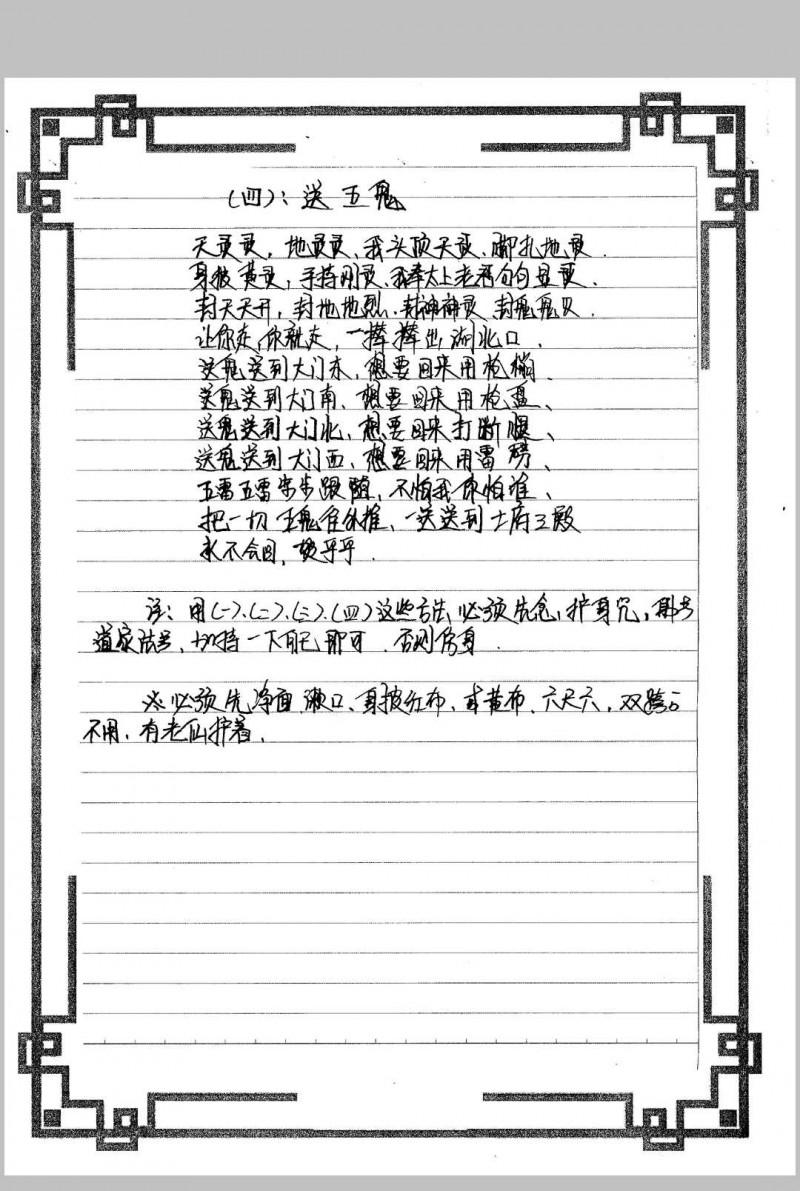 (四):送五鬼
天灵灵,地灵灵、我头顶天灵、脚扎地灵.
身披黄灵,手持刚灵、我奉太上老君句句显灵.
封天天开,封地地烈、封神神灵、封鬼鬼灭.
让你走,你就走,一撵撵出湖北口.
送鬼送到大门东,想要回来用枪
送鬼送到大门南、想要回来用枪
送鬼送到大门北,想要回来打断腿、
送鬼送到大门西,想要回来用雷劈、
五雷五雷步步跟随,不怕我你怕谁、
把一切五鬼往外推、一送送到土府三殿
永不会回,
注:用(一).(二).(三).(四)这些方法必须先念,护身咒,再
道家法,加持一下自己即可.否则伤身.
※必须先净面、漱口、身披红布,或黄布、六尺六,双跨
不用,有老仙护着、